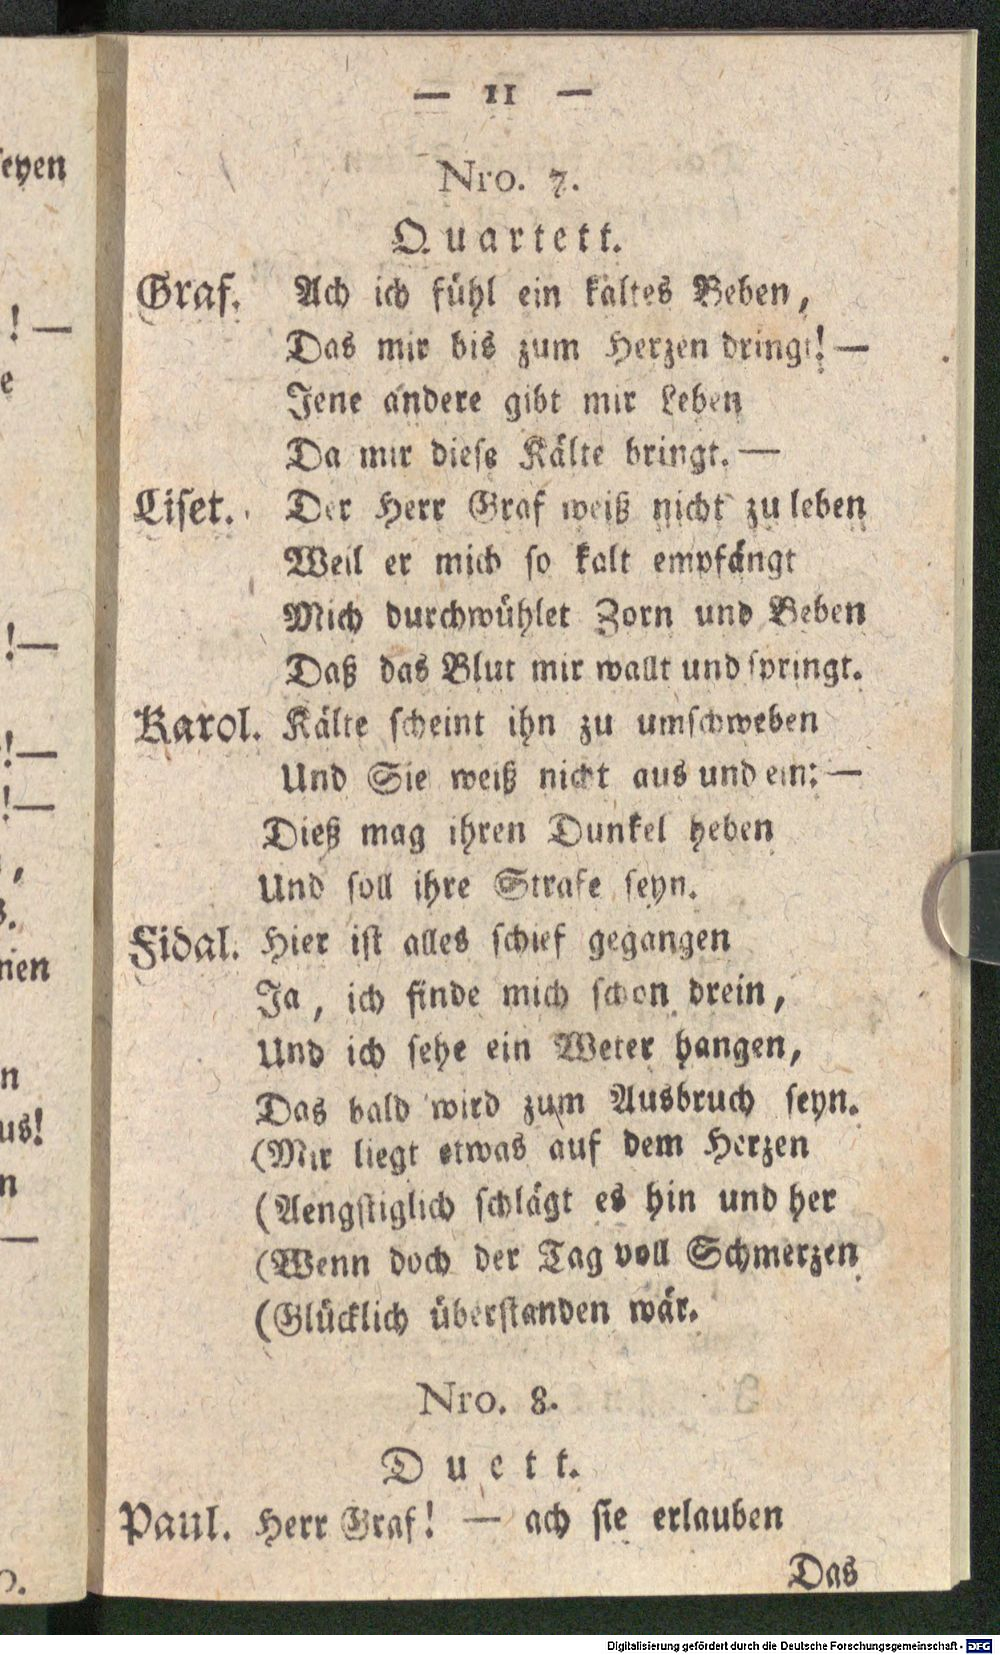 — 11 —
Nro. 7.
Quartett.
Graf. Ach ich fühl ein kaltes Beben,
Das mir bis zum Herzen dringt! —
Jene andere gibt mir Leben
Da mir diese Kälte bringt. —
Liset. Der Herr Graf weiß nicht zu leben
Weil er mich so kalt empfängt
Mich durchwühlet Zorn und Beben
Daß das Blut mir wallt und springt.
Karol. Kälte scheint ihn zu umschweben
Und Sie weiß nicht aus und ein: —
Dieß mag ihren Dunkel heben
Und soll ihre Strafe seyn.
Fidal. Hier ist alles schief gegangen
Ja, ich finde mich schon drein,
Und ich sehe ein Weter hangen,
Das bald wird zum Ausbruch seyn.
(Mir liegt etwas auf dem Herzen
(Aengstiglich schlägt es hin und her
(Wenn doch der Tag voll Schmerzen
(Glücklich überstanden wär.
Nro. 8.
Duett.
Paul. Herr Graf! — ach sie erlauben
Das
Digitalisierung gefördert durch die Deutsche Forschungsgemeinschaft - DFG